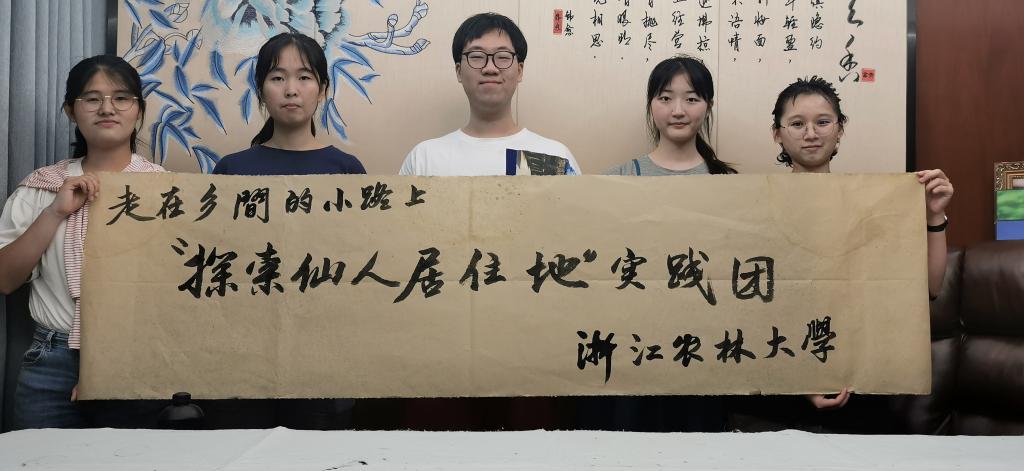 走在乡間的小路上
“探索仙人居住地”实践团
浙江农林大學